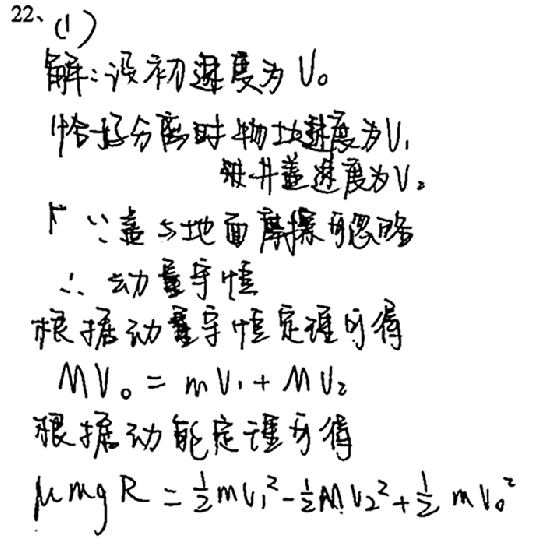 22、(1)
解:设初速度为V₀
恰好分离时物块速度为V₁
铁井盖速度为V₂
∵盖与地面摩擦可忽略
∴动量守恒
根据动量守恒定理可得
MV₀ = mV₁ + MV₂
根据动能定理可得
μmgR = ½mV₁² - ½MV₂² + ½mV₀²